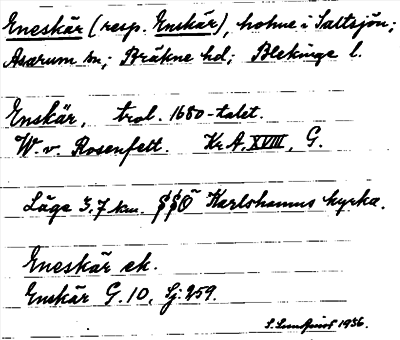 Eneskär (resp. Enskär), holme i Saltsjön;
Asarum sn; Bräkne hd; Blekinge l.
Enskär, trol. 1680-talet.
W. v. Rosenfelt. Kr A, XVIII, G.
Läge 3,7 km. Karlshamns kyrka.
Eneskär ek.
Enskär G. 10, Sj: 259.
S. Sundqvist 1936.